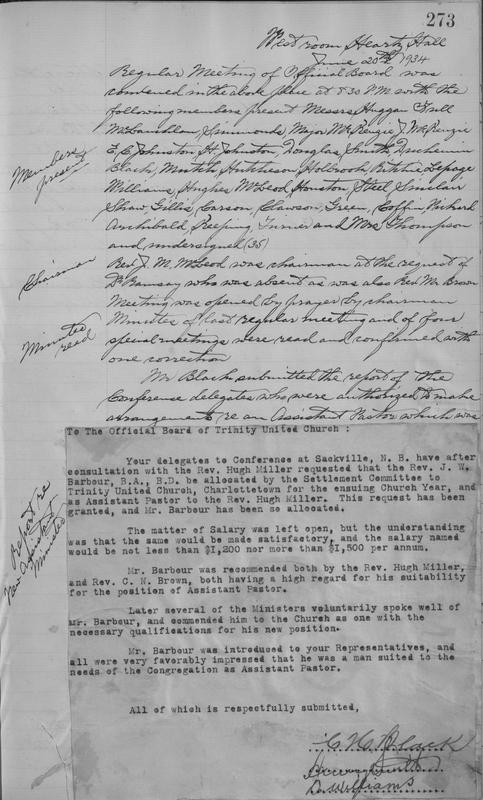 273
West room Heartz Hall
June 20th 1934
Regular Meeting of Official Board was
convened in the above place at 8 30 P.M. with the
following members present Messrs Huggan Trull
McLauchlan, Simmonds, Major McKenzie J. McKenzie
F. C. Johnston H. Johnston, Douglas, Smith, Duchemin
Black, Hutcheson Holbrook, Ritchie, Lepage
Williams, Hughes McLeod, Houston, Steel Sinclair
Shaw Gillis, Carson, Clawson, Green, Coffin, Pickard
Archibald Peeping, Turner and Mrs Thompson
and undersigned (35)
Members
present
Chairman
Rev J. M. McLeod was chairman at the request of
Dr Ramsay who was absent as was also Rev Mr Brown
Meeting was opened by prayer by chairman
Minutes
read
Minutes of last regular meeting and of four
special meetings were read and confirmed with
one correction
Mr Black submitted the report of the
Conference delegates who were authorized to make
arrangements re an Assistant Pastor which was
To The Official Board of Trinity United Church :
Report re
New Assistant
Minister
Your delegates to Conference at Sackville, N. B. have after
consultation with the Rev. Hugh Miller requested that the Rev. J. W.
Barbour, B.A., B.D. be allocated by the Settlement Committee to
Trinity United Church, Charlottetown for the ensuing Church Year, and
as Assistant Pastor to the Rev. Hugh Miller. This request has been
granted, and Mr. Barbour has been so allocated.
The matter of Salary was left open, but the understanding
was that the same would be made satisfactory, and the salary named
would be not less than $1,200 nor more than $1,500 per annum.
Mr. Barbour was recommended both by the Rev. Hugh Miller,
and Rev. C. N. Brown, both having a high regard for his suitability
for the position of Assistant Pastor.
Later several of the Ministers voluntarily spoke well of
Mr. Barbour, and commended him to the Church as one with the
necessary qualifications for his new position.
Mr. Barbour was introduced to your Representatives, and
all were very favorably impressed that he was a man suited to the
needs of the Congregation as Assistant Pastor.
All of which is respectfully submitted,
Black
Smith
D. Williams